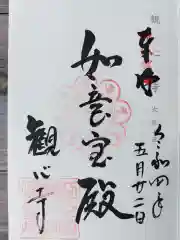 奉拝
令和四年
五月廿二日
如意宝殿
観心寺